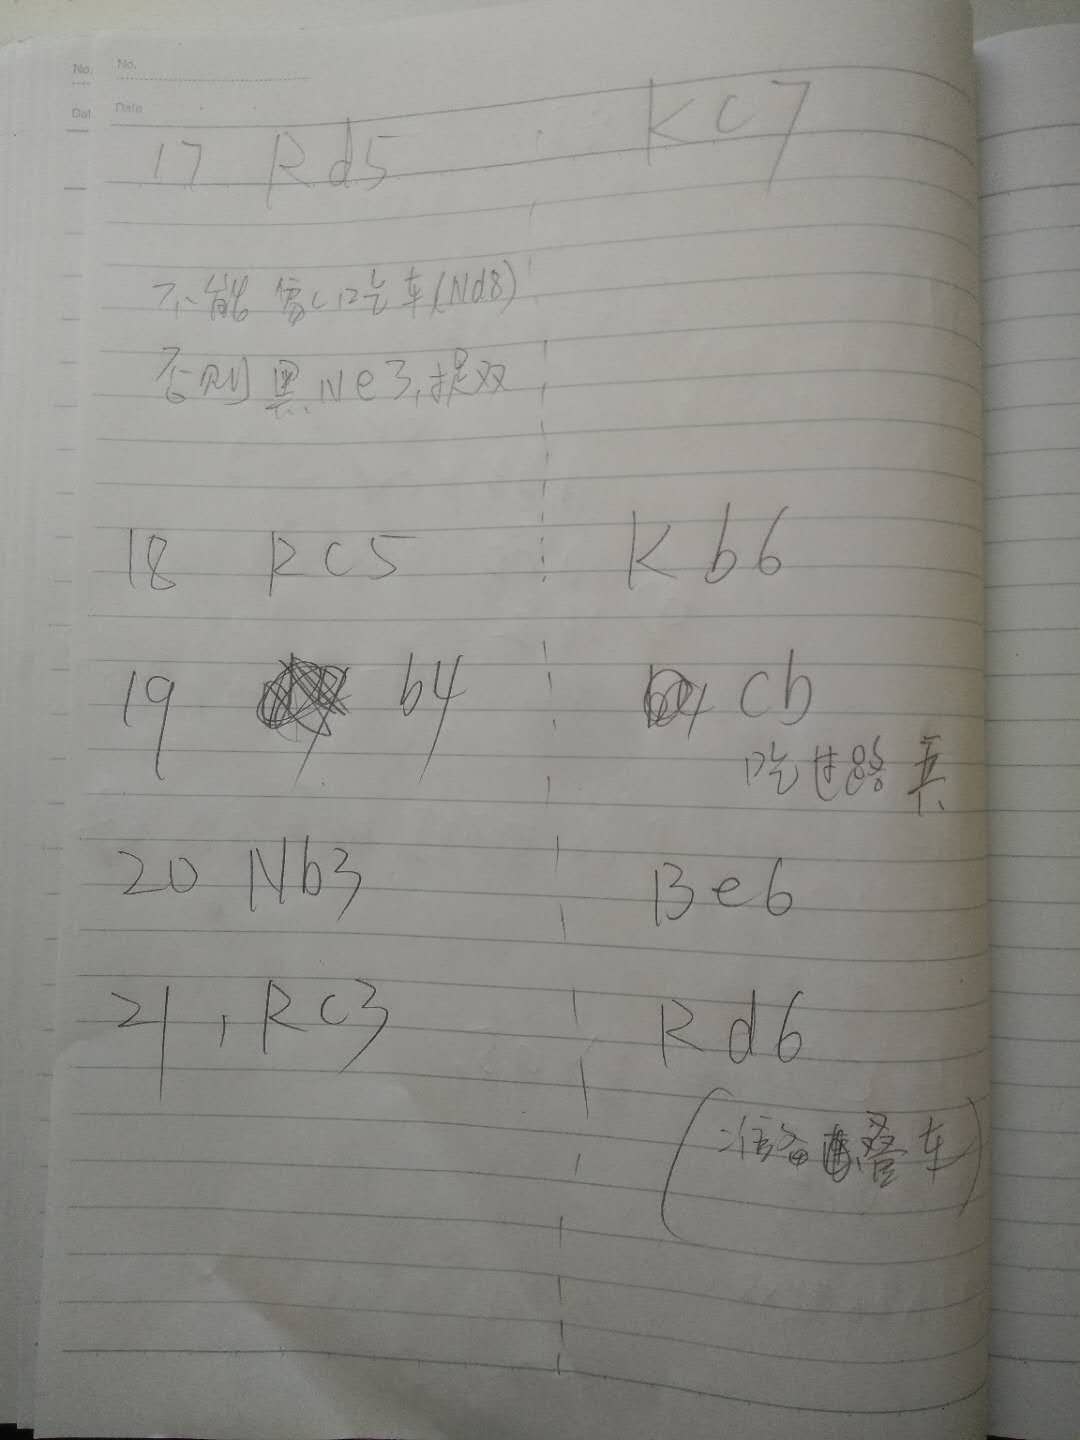 No.
No.
Dat
Date
17 Rd5 Kc7
不能贪心吃车(Nd8)
否则黑Ne3,捉双
18 Rc5 Kb6
19 b4 cb
吃过路兵
20 Nb3 Be6
21, Rc3 Rd6
(准备叠车)